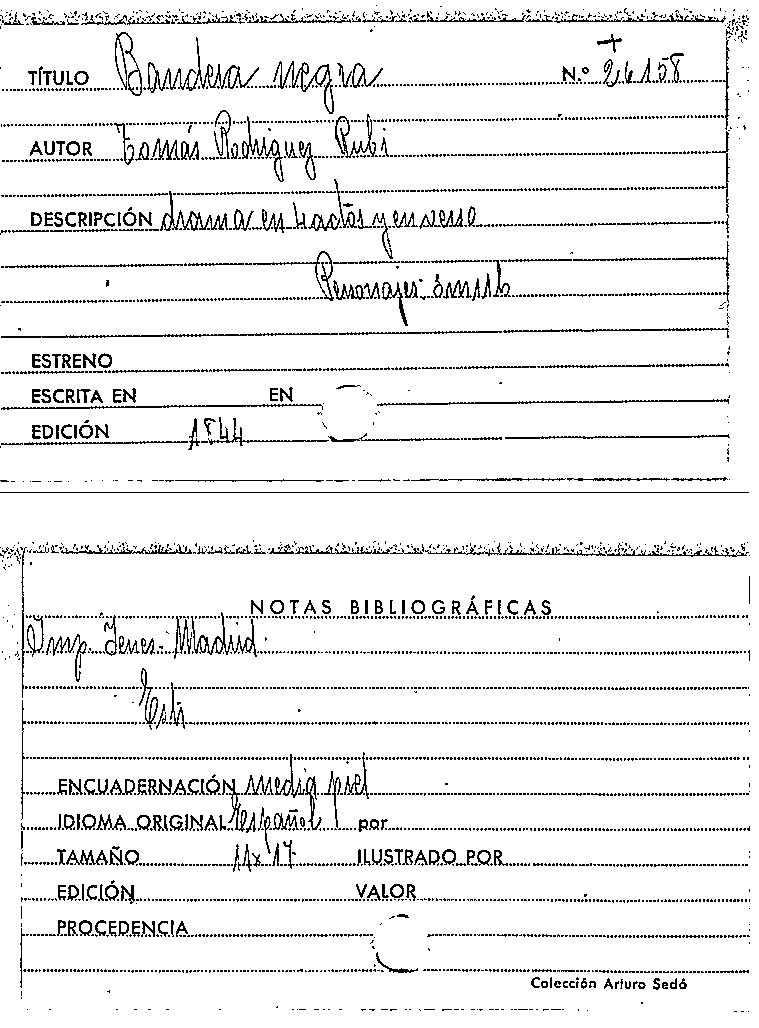 +
TÍTULO Bandera negra N.º 26158
AUTOR Tomás Rodriguez Rubi
DESCRIPCIÓN drama en 4 actos y en verso
Personajes:
ESTRENO
ESCRITA EN EN
EDICIÓN 1844
NOTAS BIBLIOGRÁFICAS
Imp. Madrid
ENCUADERNACIÓN media piel
IDIOMA ORIGINAL Español por
TAMAÑO 11x17 ILUSTRADO POR
EDICIÓN VALOR
PROCEDENCIA
Colección Arturo Sedó